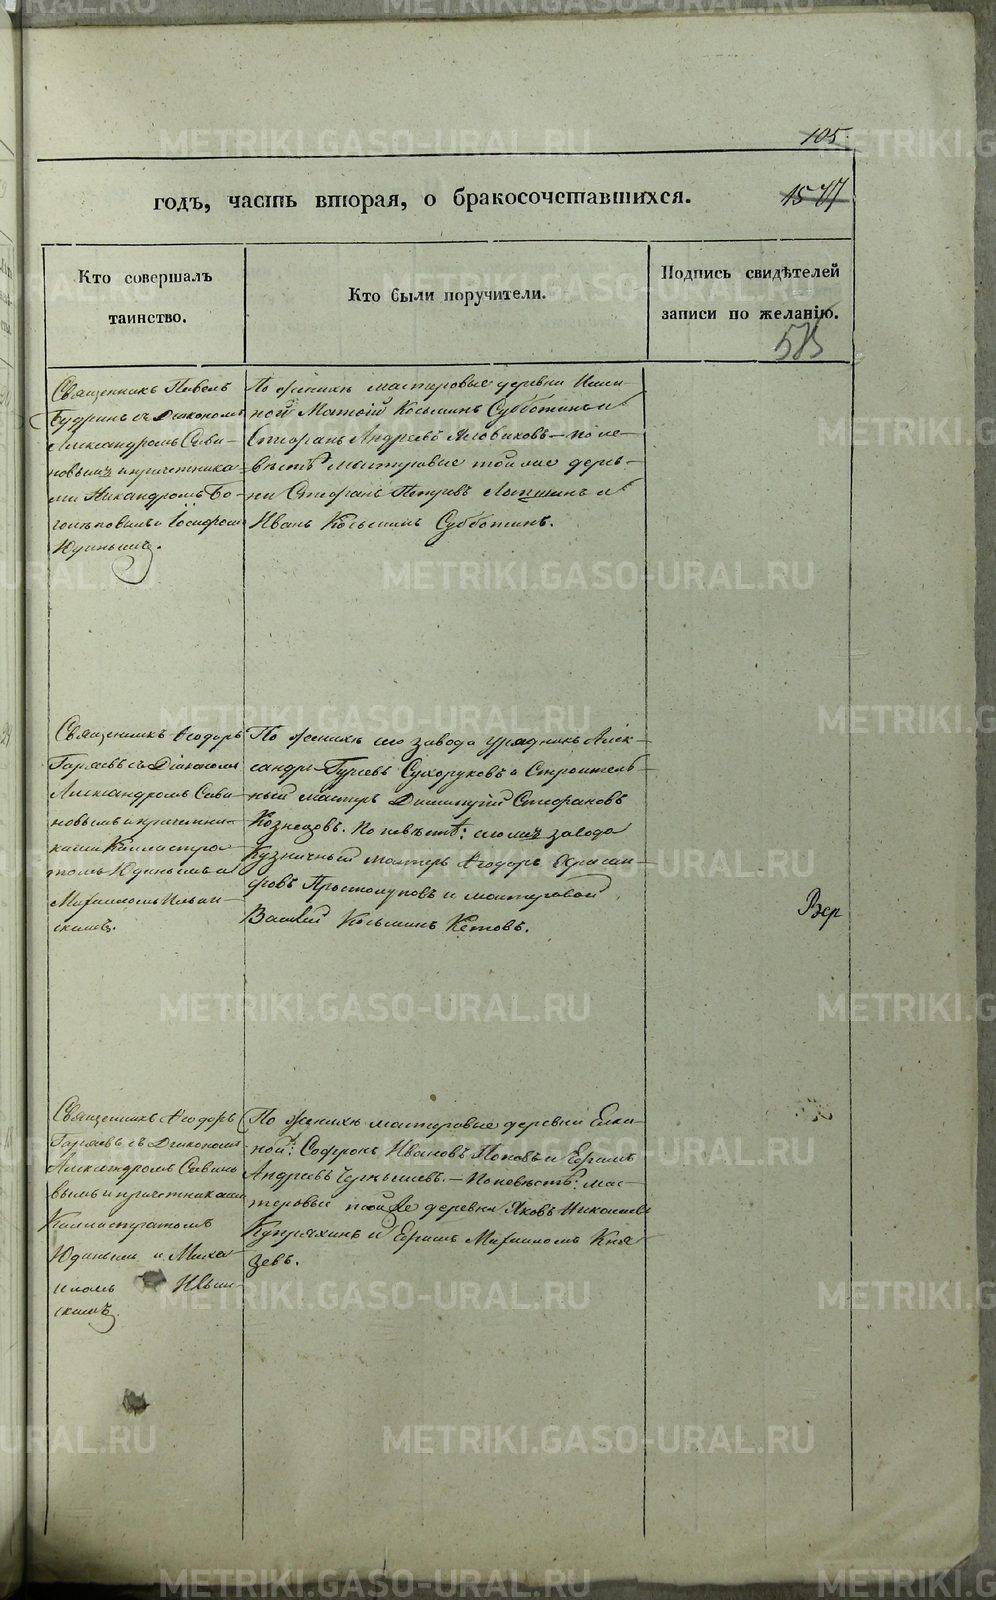 105.
годъ, часть вторая, о бракосочетавшихся.
1577
Кто совершалъ
таинство.
Кто были поручители.
Подпись свидѣтелей
записи по желанію.
Священникъ Павелъ
Будринъ съ Діакономъ
Александромъ Сави-
новымъ и причетника-
ми Никандромъ Бо-
и Іосифомъ
Юдинымъ.
По женихѣ мастеровые деревни
ной Матѳій Козьминъ Субботинъ и
Стефанъ Андреевъ по не-
вѣстѣ мастеровые той же дерев-
ни Стефанъ Петровъ и
Иванъ Козьминъ Субботинъ.
Священникъ Ѳеодоръ
съ Діакономъ
Александромъ Сави-
новымъ и причетни-
ками Каллистра-
томъ Юдинымъ и
Михаиломъ Ильин-
скимъ.
По женихѣ сего завода урядникъ Алек-
сандръ Сухоруковъ и Строитель-
ный мастеръ Димитрій Стефановъ
Кознецовъ. По невѣстѣ: сего завода
Кузничный мастеръ Ѳеодоръ Хрисан-
фовъ и мастеровой
Василій Козьминъ Кетовъ.
Священникъ Ѳеодоръ
съ Діакономъ
Александромъ Савино
вымъ и причетниками
Каллистратомъ
Юдинымъ и Миха
иломъ Ильин-
скимъ.
По женихѣ мастеровые деревни
ной: Софронъ Ивановъ Поповъ и Ефимъ
Андреевъ Чернышевъ.— По невѣстѣ: мас-
теровые той же деревни Яковъ Николаевъ
Купряхинъ и Ефимъ Михаиловъ Кня
зевъ.
METRIKI.GASO-URAL.RU